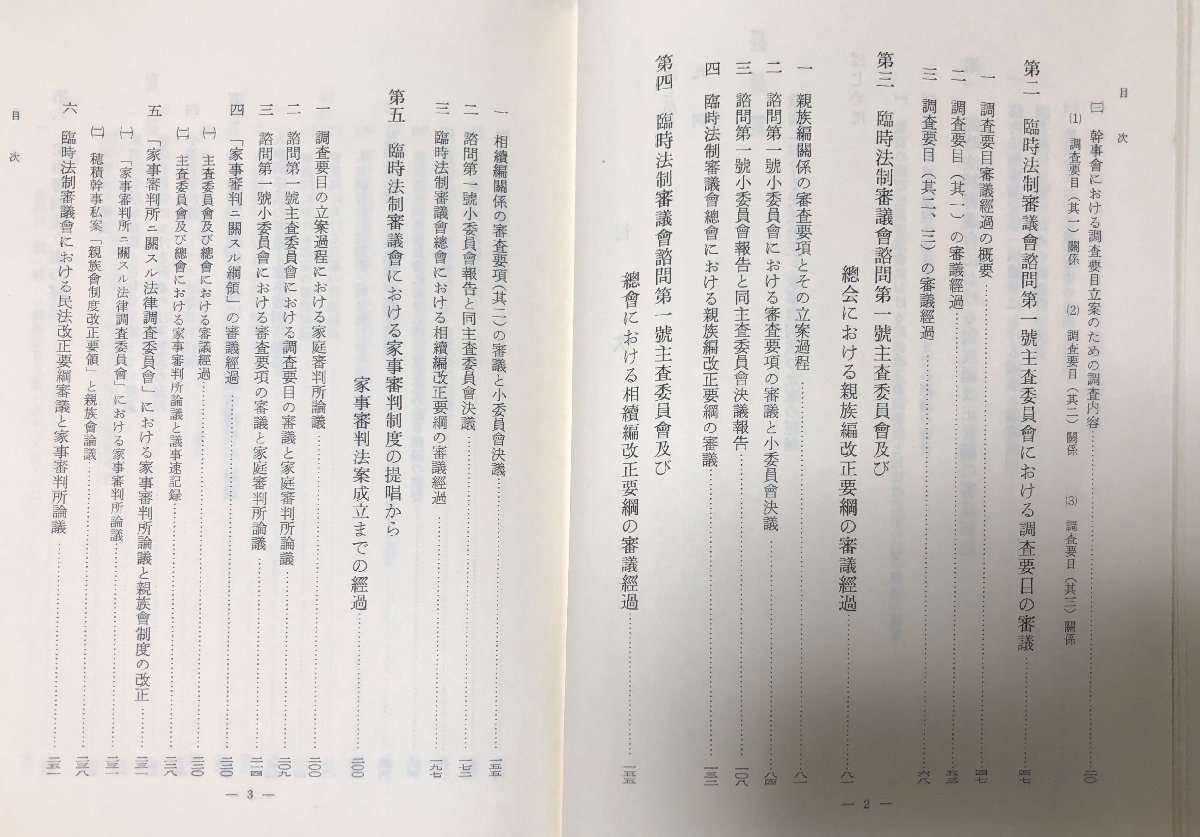 目次
㈢ 幹事會における調査要目立案のための調査内容…………二〇
⑴ 調査要目（其一）關係 ⑵ 調査要目（其二）關係 ⑶ 調査要目（其三）關係
第二 臨時法制審議會諮問第一號主査委員會における調査要目の審議…………四七
一 調査要目審議經過の概要…………四七
二 調査要目（其一）の審議經過…………五三
三 調査要目（其二、三）の審議經過…………六八
第三 臨時法制審議會諮問第一號主査委員會及び
總会における親族編改正要綱の審議經過…………八一
一 親族編關係の審査要項とその立案過程…………八一
二 諮問第一號小委員會における審査要項の審議と小委員會決議…………八四
三 諮問第一號小委員會報告と同主査委員會決議報告…………一〇八
四 臨時法制審議會總會における親族編改正要綱の審議…………一三二
第四 臨時法制審議會諮問第一號主査委員會及び
總會における相續編改正要綱の審議經過…………一五五
— 2 —
一 相續編關係の審査要項（其二）の審議と小委員會決議…………一五五
二 諮問第一號小委員會報告と同主査委員會決議…………一七三
三 臨時法制審議會總會における相續編改正要綱の審議經過…………一九七
第五 臨時法制審議會における家事審判制度の提唱から
家事審判法案成立までの經過…………二〇〇
一 調査要目の立案過程における家庭審判所論議…………二〇〇
二 諮問第一號主査委員會における調査要目の審議と家庭審判所論議…………二〇九
三 諮問第一號小委員會における審査要項の審議と家庭審判所論議…………二一四
四 「家事審判ニ關スル綱領」の審議經過…………二二〇
㈠ 主査委員會及び總會における審議經過…………二二〇
㈡ 主査委員會及び總會における家事審判所論議と議事速記録…………二二八
五 「家事審判所ニ關スル法律調査委員會」における家事審判所論議と親族會制度の改正…………二三一
㈠ 「家事審判所ニ關スル法律調査委員會」における家事審判所論議…………二三一
㈡ 穗積幹事私案「親族會制度改正要領」と親族會論議…………二三八
六 臨時法制審議會における民法改正要綱審議と家事審判所論議…………二五一
目次
— 3 —